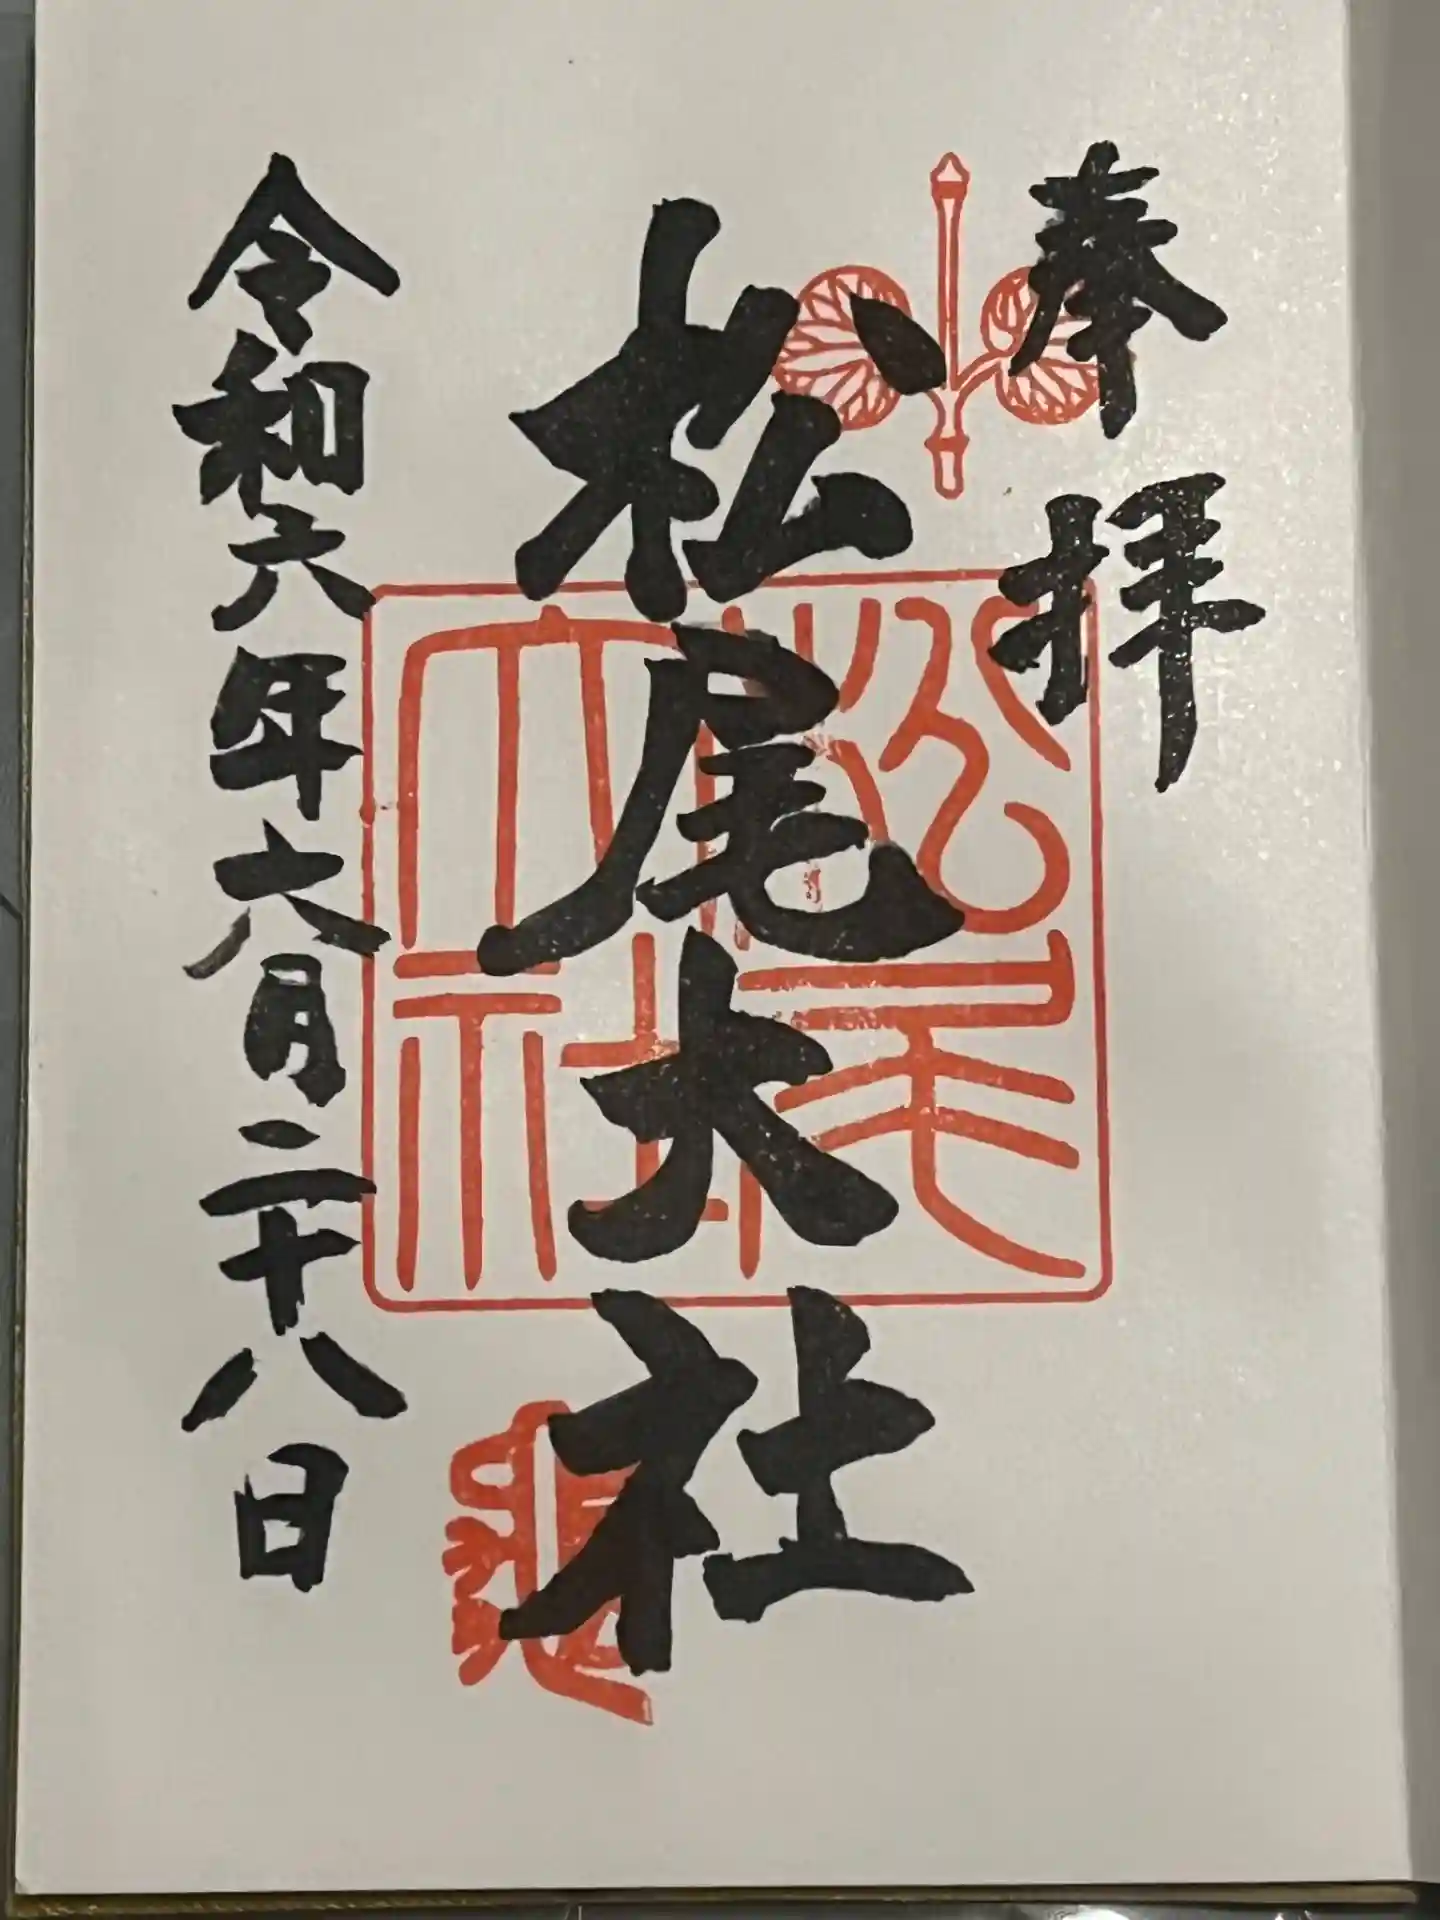 奉拝
松尾大社
令和六年六月二十八日
松尾大社